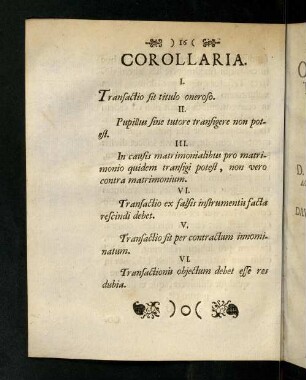 ) 16 (
COROLLARIA.
I.
Transactio fit titulo oneroso.
II.
Pupillus sine tutore transigere non pot-
est.
III.
In causis matrimonialibus pro matri-
monio quidem transigi potest, non vero
contra matrimonium.
VI.
Transactio ex falsis instrumentis facta
rescindi debet.
V.
Transactio fit per contractum innomi-
natum.
VI.
Transactionis objectum debet esse res
dubia.
)o(